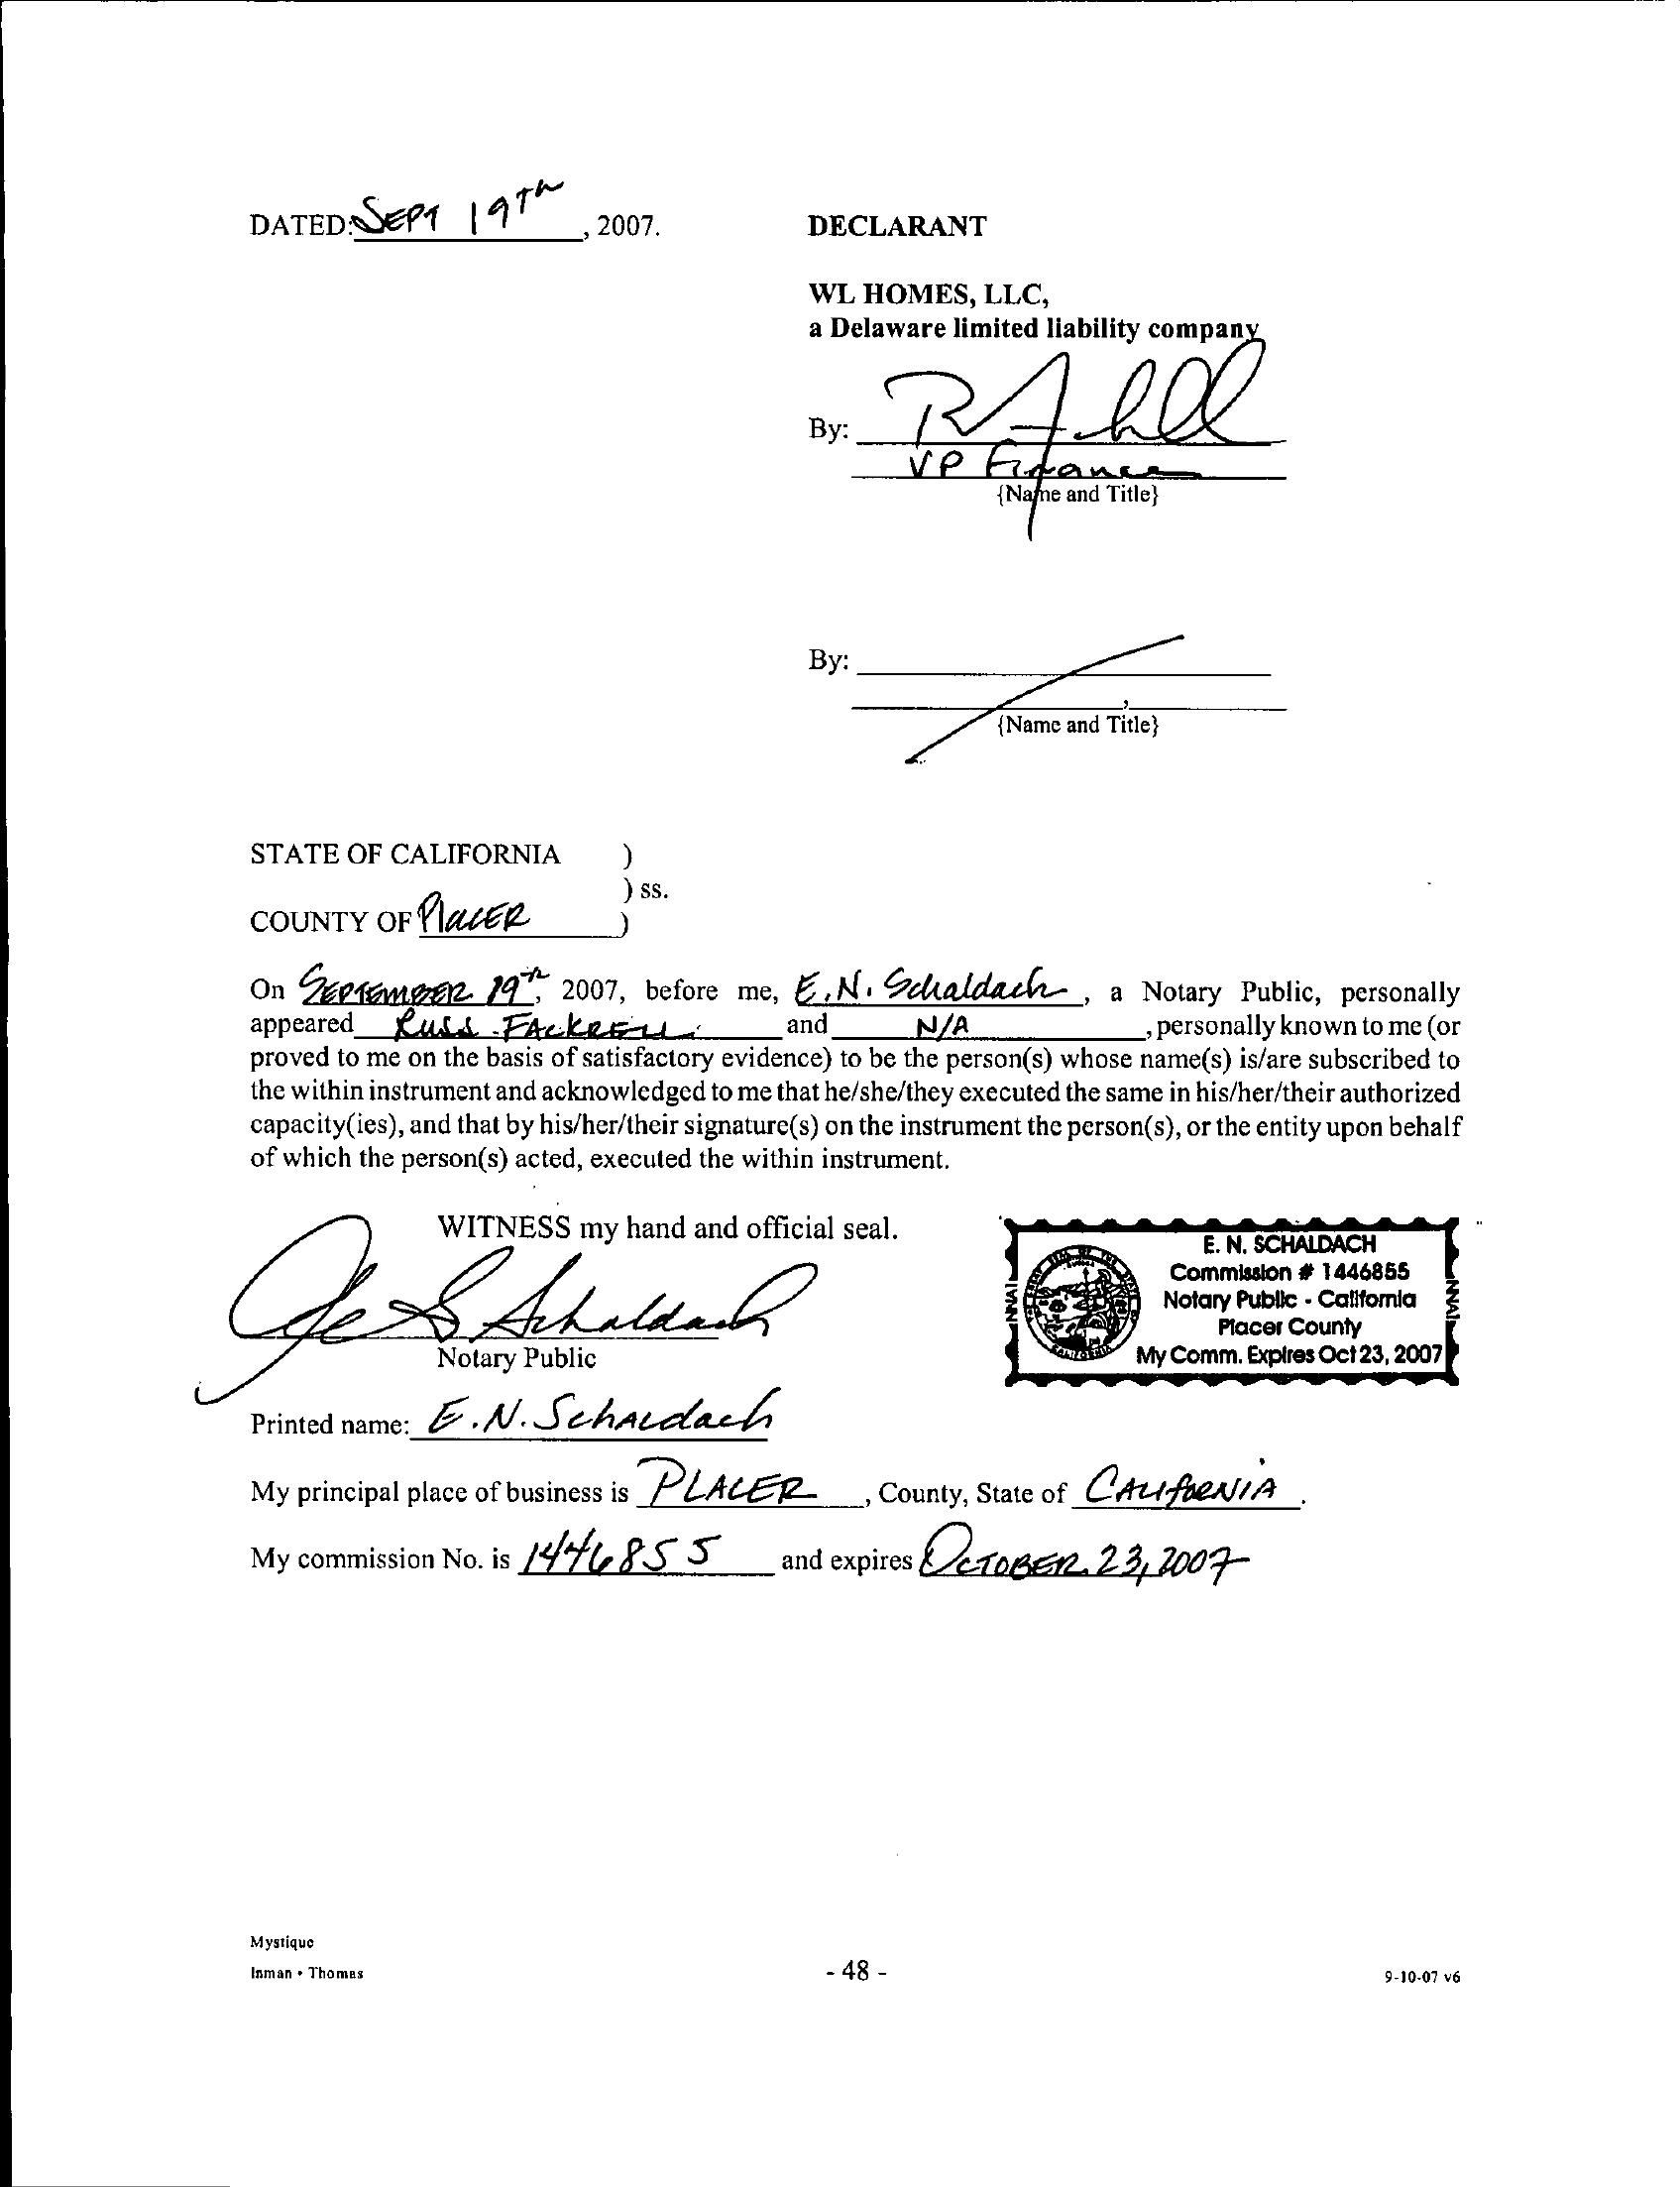 DATED: SEPT 19TH, 2007.
DECLARANT
WL HOMES, LLC,
a Delaware limited liability company
By:
VP Finance
{Name and Title}
By:
{Name and Title}
STATE OF CALIFORNIA )
) ss.
COUNTY OF PlaCER )
On SEPTEMBER 19TH, 2007, before me, E.N. Schaldach, a Notary Public, personally
appeared Russ FACKRELL and N/A, personally known to me (or
proved to me on the basis of satisfactory evidence) to be the person(s) whose name(s) is/are subscribed to
the within instrument and acknowledged to me that he/she/they executed the same in his/her/their authorized
capacity(ies), and that by his/her/their signature(s) on the instrument the person(s), or the entity upon behalf
of which the person(s) acted, executed the within instrument.
WITNESS my hand and official seal.
Schaldach
Notary Public
E. N. SCHALDACH
Commission # 1446855
Notary Public - California
Placer County
My Comm. Expires Oct 23, 2007
Printed name: E.N. SchALdach
My principal place of business is PLACER, County, State of CALIFORNIA.
My commission No. is 1446855 and expires OCTOBER 23, 2007
Mystique
Inman • Thomas
- 48 -
9-10-07 v6